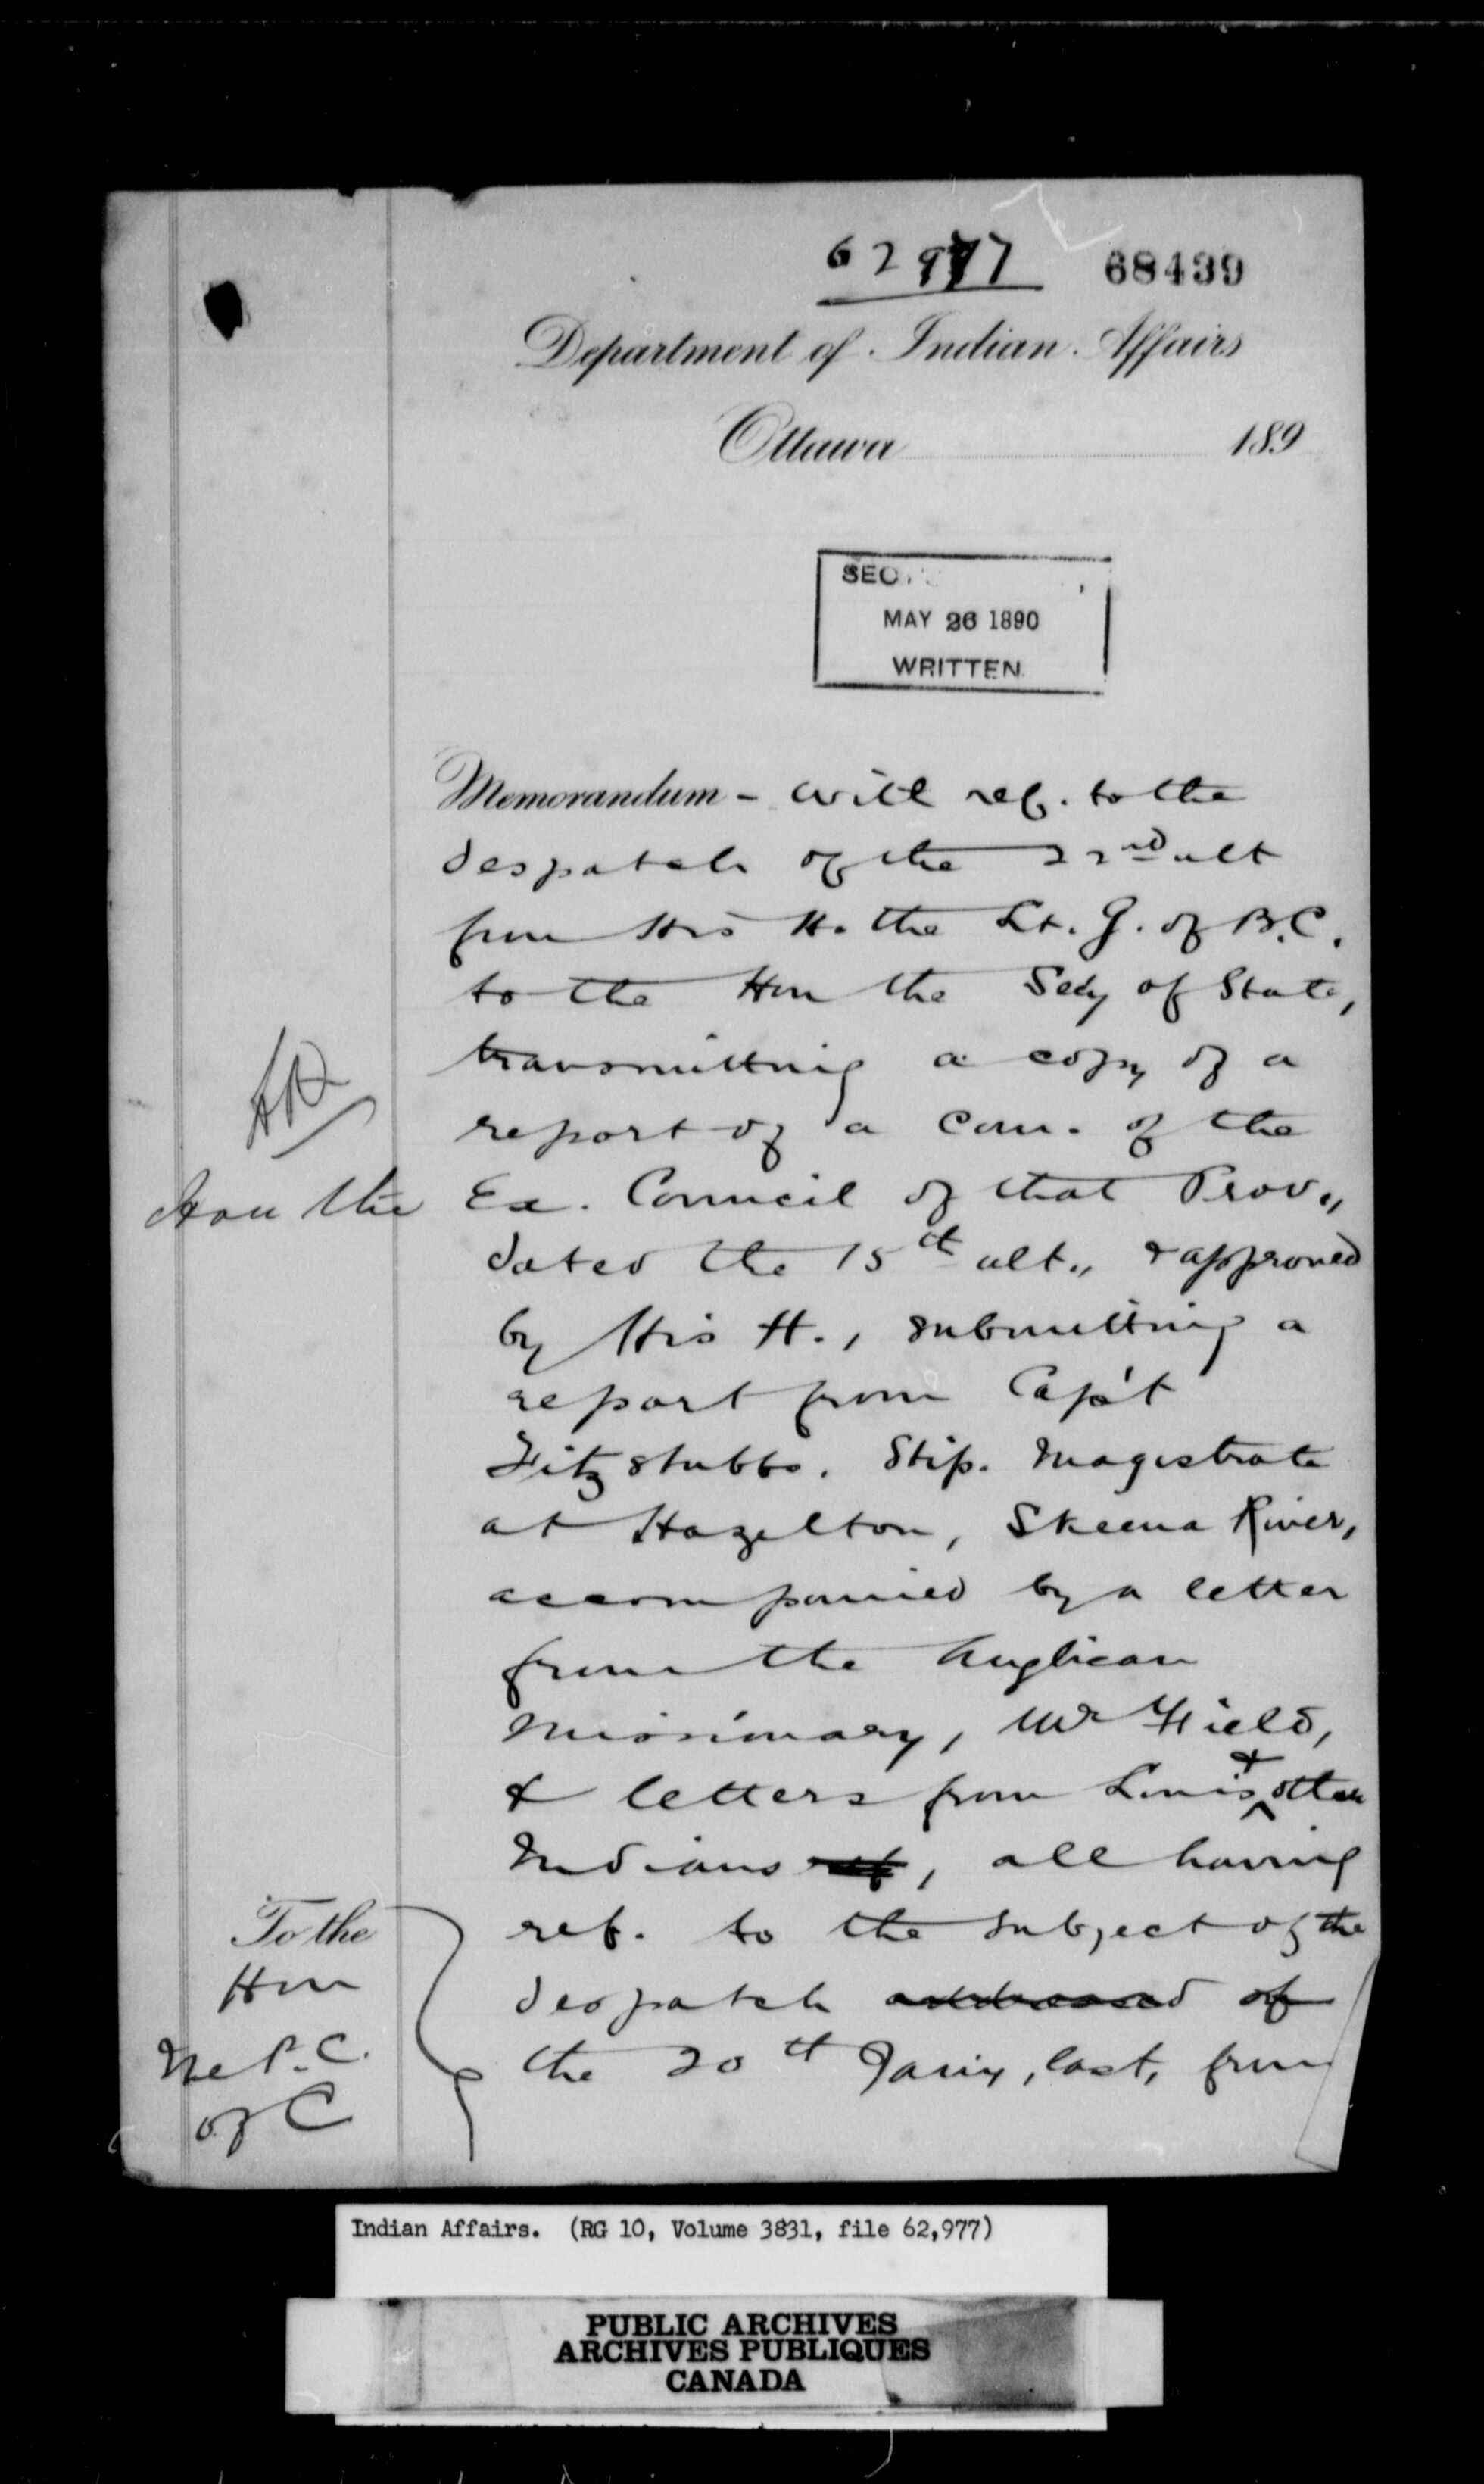 62977 68439
Department of Indian Affairs
Ottawa 189
SEC
MAY 26 1890
WRITTEN
Memorandum - with ref. to the
despatch of the 22nd ult
from His H. the Lt. G. of B.C.
to the Hon the Secy of State,
transmitting a copy of a
report of a Com. of the
Hon the
Ex. Council of that Prov.,
dated the 15th ult., & approved
by His H., submitting a
report from Cap't
Fitzstubbs. Stip. Magistrate
at Hazelton, Skeena River,
accompanied by a letter
from the Anglican
Missionary, Mr Field,
& letters from Louis & other
Indians, all having
ref. to the subject of the
despatch addressed of
the 20th Jany, last, from
To the
Hon
The P.C.
of C
Indian Affairs. (RG 10, Volume 3831, file 62,977)
PUBLIC ARCHIVES
ARCHIVES PUBLIQUES
CANADA